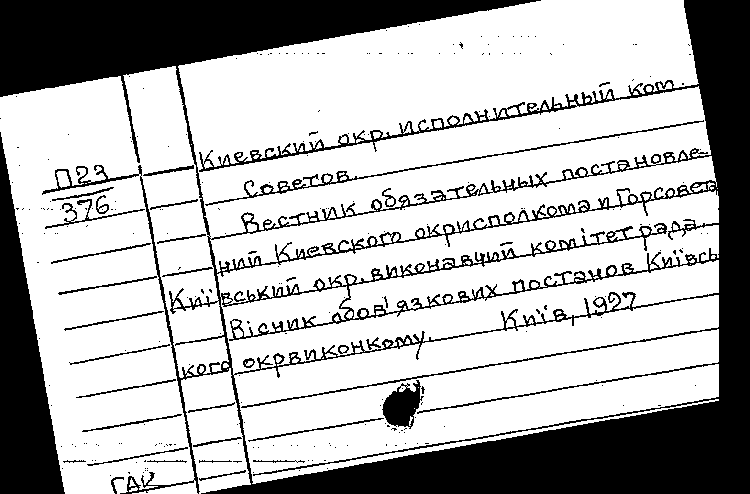 Киевский окр. исполнительный ком.
П23
376
Советов.
Вестник обязательных постановле-
ний Киевского окрисполкома и Горсовета
Київський окр. виконавчий комітет рад.
Вісник обов'язкових постанов Київсь
кого окрвиконкому. Київ, 1927